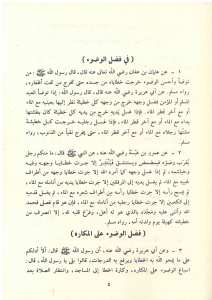 ( في فضل الوضوء )
١ - عن عثمان بن عفان رضي الله تعالى عنه قال، قال رسول الله ﷺ : من
توضأ فأحسن الوضوء خرجت خطاياه من جسده حتى تخرج من تحت أظفاره،
رواه مسلم. عن أبي هريرة رضي الله عنه، أن رسول الله ﷺ قال: إذا توضأ العبد
المسلم أو المؤمن فغسل وجهه خرج من وجهه كل خطيئة نظر إليها بعينيه مع الماء
أو مع آخر قطر الماء، فإذا غسل يديه خرج من يديه كل خطيئة كان بطشتها
يداه مع الماء، أو مع آخر قطر الماء، فإذا غسل رجليه خرجت كل خطيئة مشتها
رجلاه مع الماء أو مع آخر قطر الماء، حتى يخرج نقياً من الذنوب، رواه
مسلم.
٢ - عن عمرو بن عبسة رضي الله عنه، عن النبي ﷺ قال: ما منكم رجل
يقرب وضوءه فيتمضمض ويستنشق فينتثر إلا خرت خطايا وجهه وفيه
وخياشيمه، ثم إذا غسل وجهه كما أمره الله إلا خرت خطايا وجهه من أطراف
لحيته مع الماء، ثم يغسل يديه إلى المرفقين إلا خرت خطايا يديه من أنامله مع الماء،
ثم يمسح رأسه إلا خرت خطايا رأسه من أطراف شعره مع الماء، ثم يغسل قدميه
إلى الكعبين إلا خرت خطايا رجليه من أنامله مع الماء، فإن هو قام فصلى فحمد
الله وأثنى عليه ومجده بالذي هو له أهل، وفرغ قلبه لله، إلا انصرف من
خطيئته كهيئته يوم ولدته أمه، رواه مسلم.
( فضل الوضوء على المكاره )
٣ - عن أبي هريرة رضي الله عنه، أن رسول الله ﷺ، قال: ألا أدلكم
على ما يمحو الله به الخطايا ويرفع به الدرجات، قالوا: بلى يا رسول الله، قال:
إسباغ الوضوء على المكاره، وكثرة الخطا إلى المساجد، وانتظار الصلاة بعد